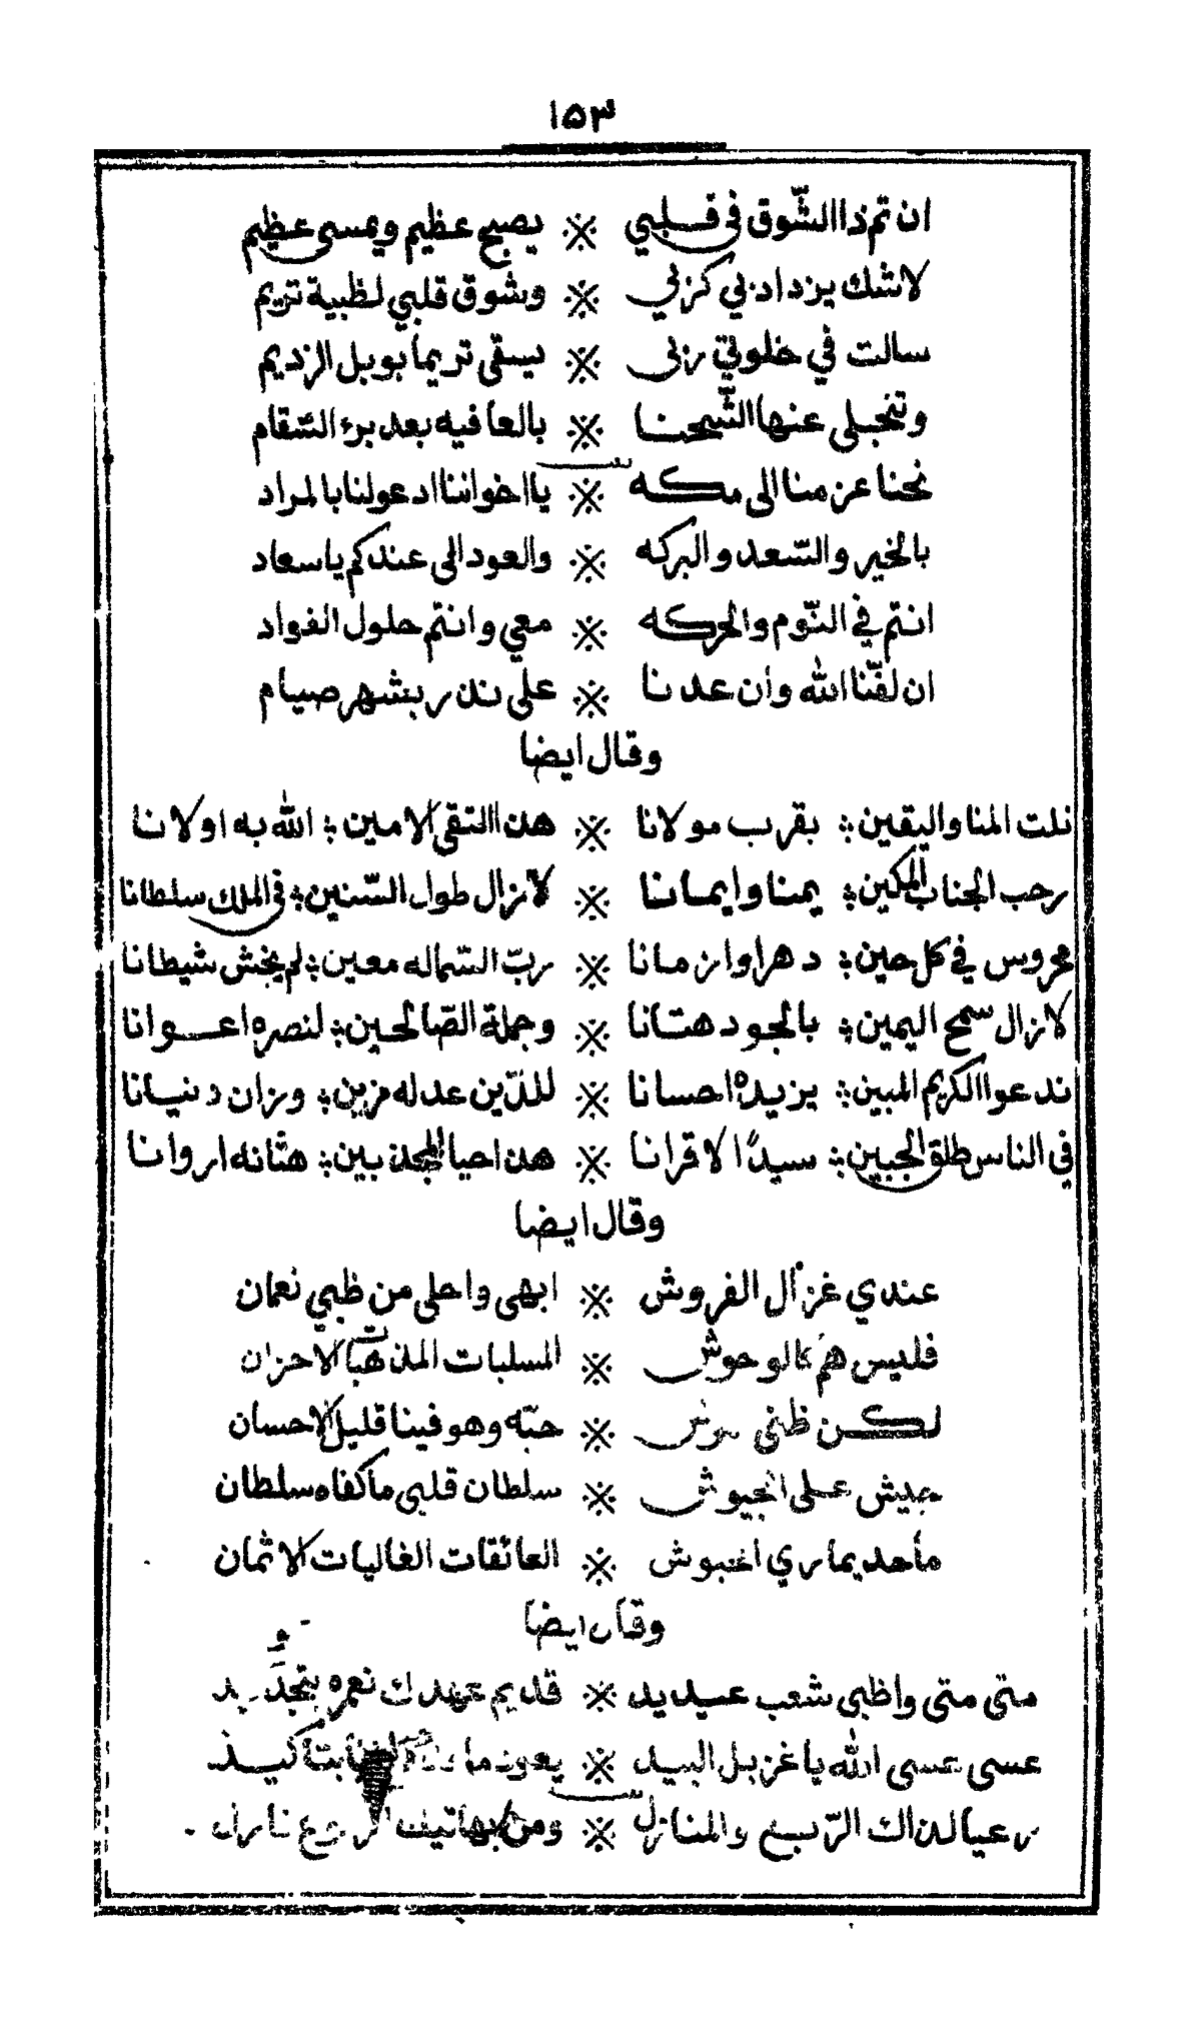 ١٥٣
ان تم ذا الشّوق في قلبي ※ يصبح عظيم ويمسي عظيم
لاشك يزداد بي كربي ※ وشوق قلبي لظبية تريم
سالت في خلوتي ربي ※ يسقي تريما بوبل الرديم
وتنجلى عنها الشّحنا ※ بالعافيه بعد برء السّقام
نحنا عزمنا الى مكه ※ يا اخواننا ادعولنا بالمراد
بالخير والسّعد والبركه ※ والعود الى عندكم ياسعاد
انتم في النّوم والحركه ※ معي وانتم حلول الفواد
ان لفّنا الله وان عدنا ※ على نذر بشهر صيام
وقال ايضا
نلت المنا واليقين ؛ بقرب مولانا ※ هذا التقي الامين ؛ الله به اولانا
رحب الجناب المكين ؛ يمنا وايمانا ※ لازال طول السّنين ؛ في الملك سلطانا
محروس في كل حين ؛ دهرا وازمانا ※ ربّ السّماله معين ؛ لم يخش شيطانا
لازال سمح اليمين ؛ بالجود هتانا ※ وجملة الصّالحين ؛ لنصره اعوانا
ندعوا الكريم المبين ؛ يزيده احسانا ※ للدّين عدله مزين ؛ وزان دنيانا
في الناس طلق الجبين ؛ سيدًا الاقرانا ※ هذا حيا المجدبين ؛ هتّانه اروانا
وقال ايضا
عندي غزال الفروش ※ ابهى واحلى من ظبي نعمان
فليس هم كالوحوش ※ المسلبات المذهبات الاحزان
لكن ظني ※ حبّه وهو فينا قليل الاحسان
جيش على الجيوش ※ سلطان قلبي ما كفاه سلطان
ما حد يماري اخبوش ※ العانقات الغاليات الاثمان
وقال ايضا
متى متى واظبي شعب عيديد ※ قديم عهدك نعمره بتجديد
عسى عسى الله ياغزيل البيد ※ يعود ما بتاكيد
رعيا لذاك الرّبيع والمنازل ※ ومن بهاتيك نازل